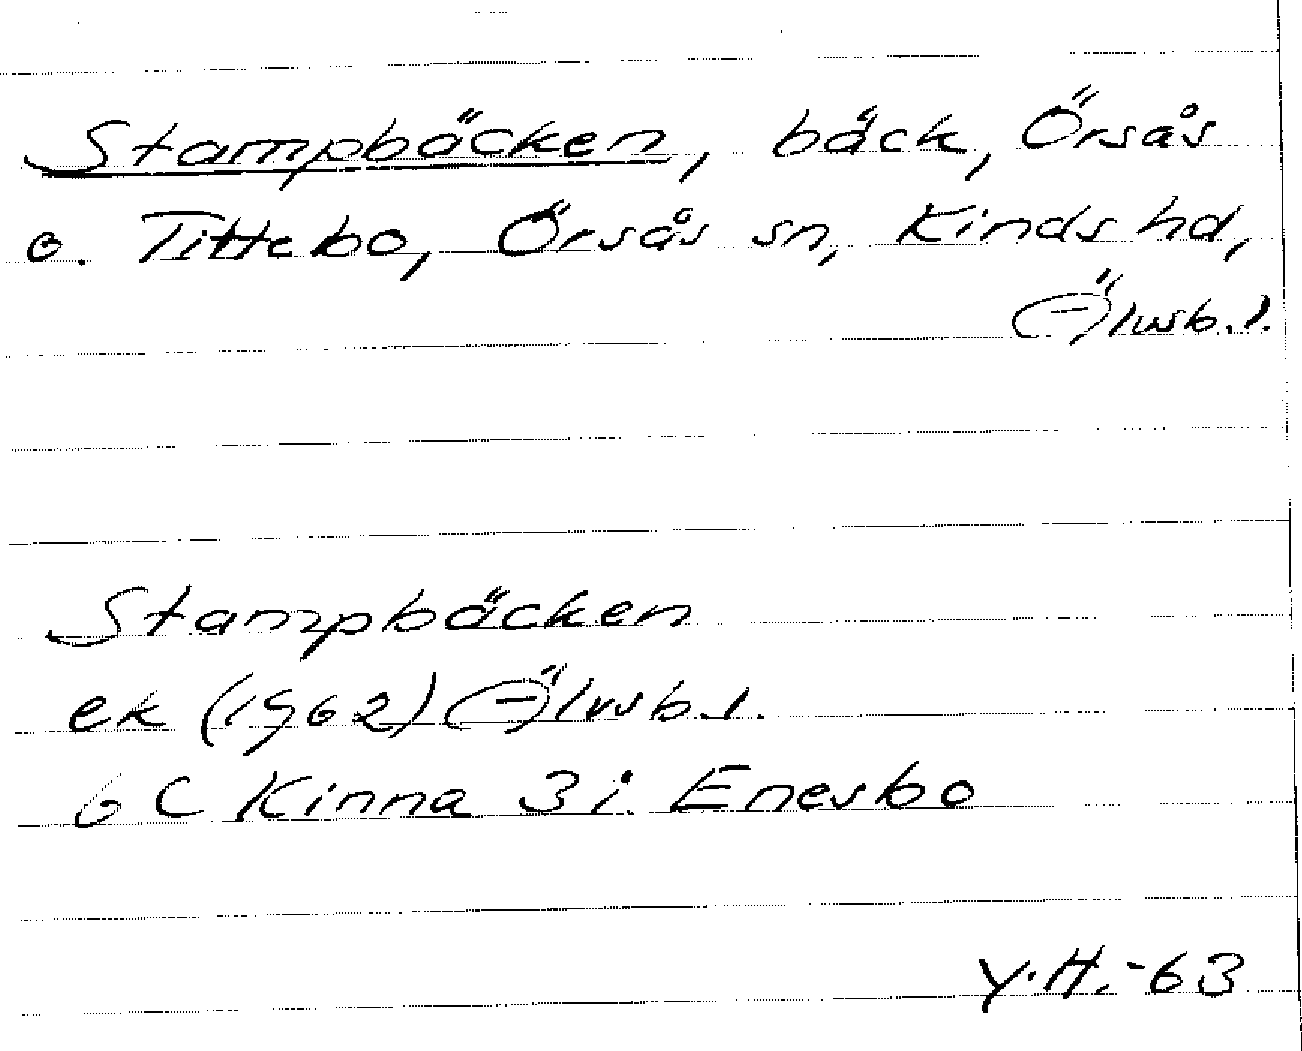 Stampbäcken, bäck, Örsås
o. Tittebo, Örsås sn, Kinds hd,
Älvsb.l.
Stampbäcken
ek (1962) Älvsb.l.
6 C Kinna 3i Enesbo
Y.H.-63